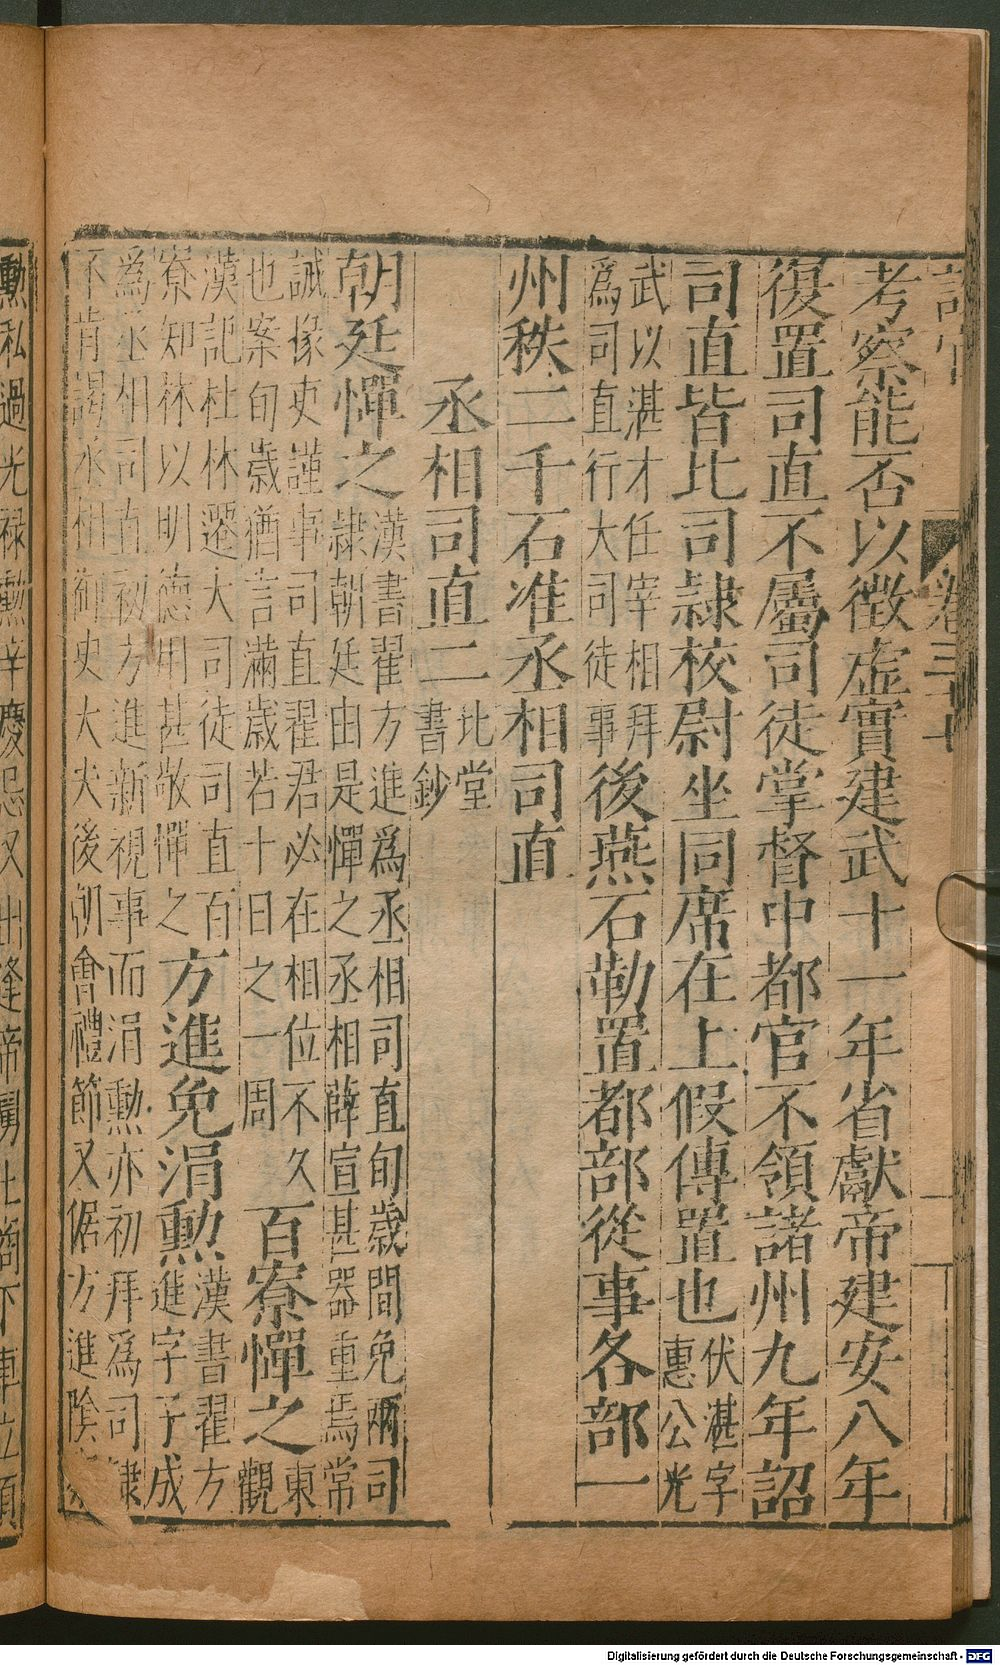 卷三十
考察能否以徵虛實建武十一年省獻帝建安八年
復置司直不屬司徒掌督中都官不領諸州九年詔
司直皆比司隷校尉坐同席在上假傳置也伏湛字惠公光
武以湛才任宰相拜爲司直行大司徒事後燕石勒置都部從事各部一
州秩二千石准丞相司直
丞相司直二北堂書鈔
朝廷憚之漢書翟方進爲丞相司直旬歲間免兩司隷朝廷由是憚之丞相薛宣甚器重焉常
誡掾吏謹事司直翟君必在相位不久也案旬歲猶言滿歲若十日之一周百寮憚之東觀
漢記杜林遷大司徒司直百寮知林以明德用甚敬憚之方進免涓勳漢書翟方進字子成
爲丞相司直初方進新視事而涓勲亦初拜爲司隷不肯謁丞相御史大夫後朝會禮節又倨方進陰
勲私過光祿勲辛慶忌又出逢帝舅土商下車立須
Digitalisierung gefördert durch die Deutsche Forschungsgemeinschaft - DFG